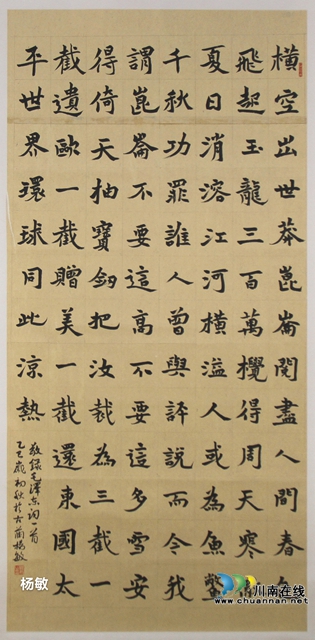 橫空出世莽崑崙閱盡人間春色
飛起玉龍三百萬攪得周天寒徹
夏日消溶江河橫溢人或為魚鱉
千秋功罪誰人曾與評說而今我
謂崑崙不要這高不要這多雪安
得倚天抽寶劍把汝裁為三截一
截遺歐一截贈美一截還東國太
平世界環球同此涼熱
敬錄毛澤東詞一首
乙巳歲初秋於古藺楊敏
杨敏
川南在线
www.chuannan.net